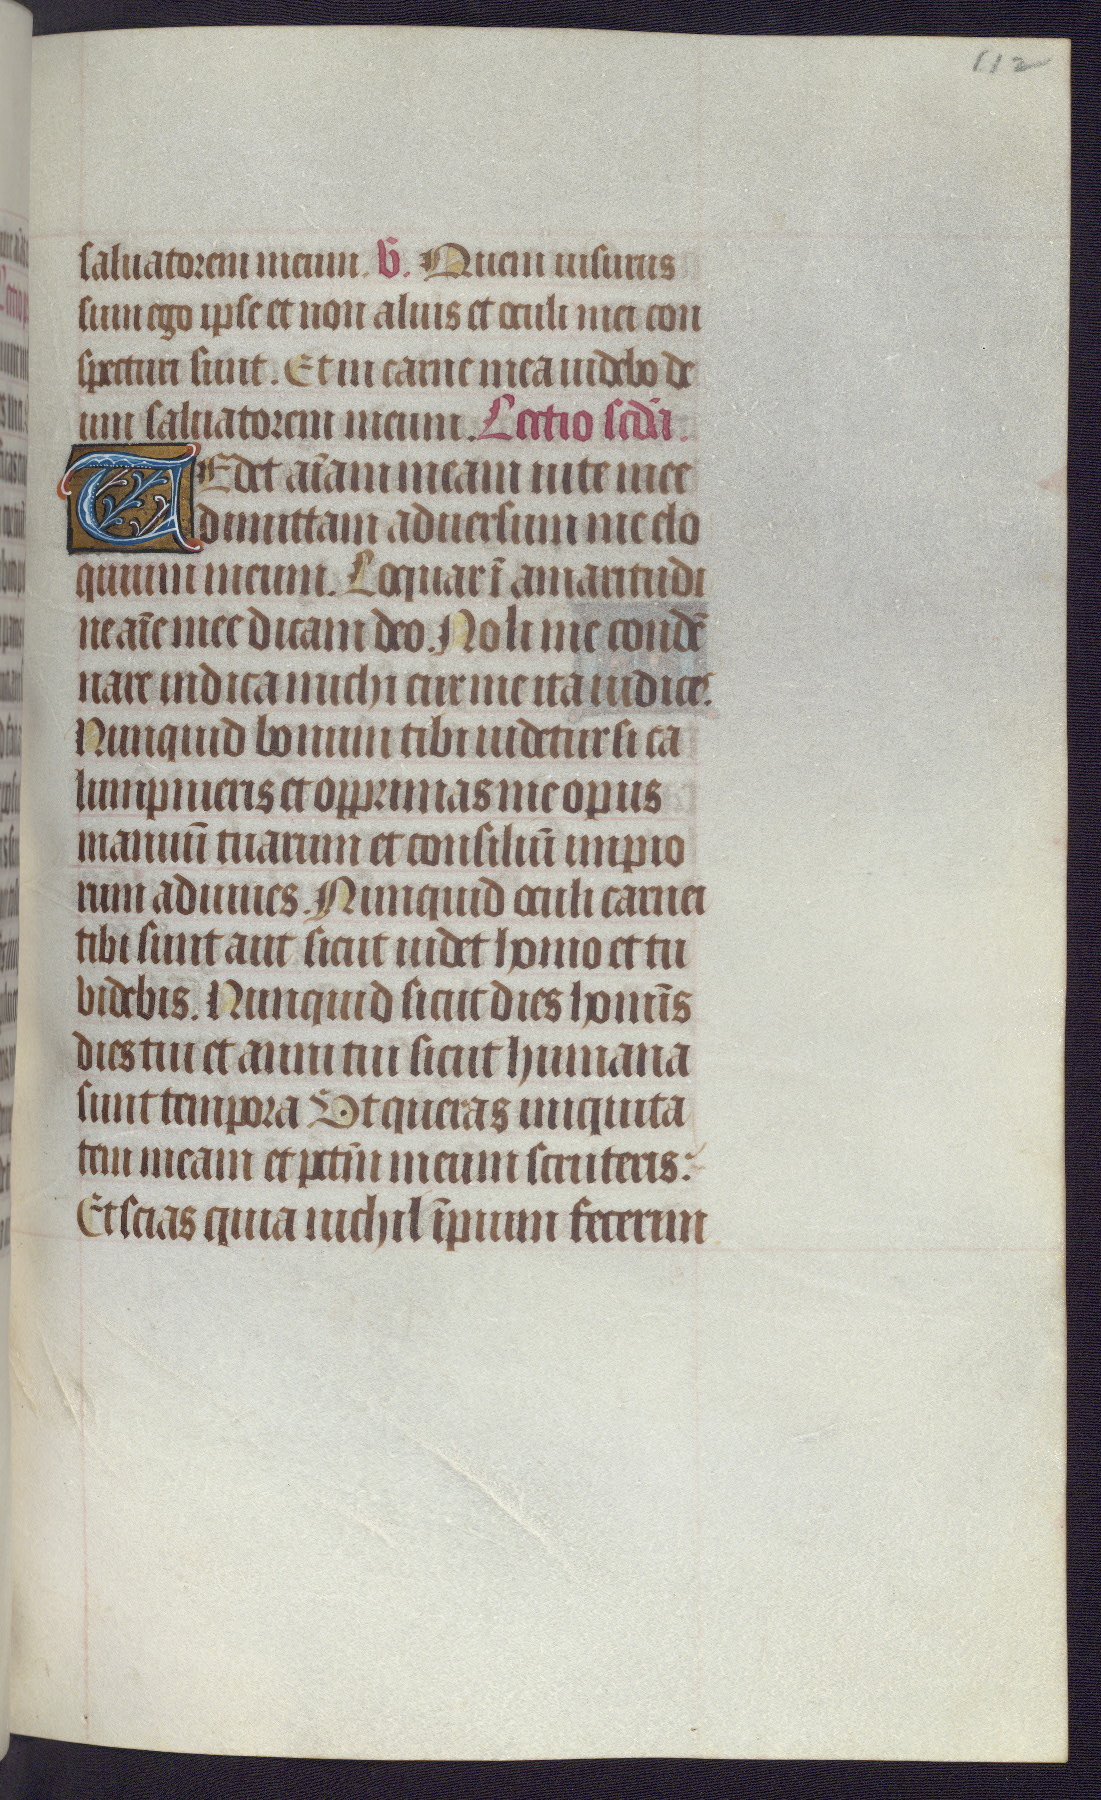 112
saluatorem meum. V. Quem uisurus
sum ego ipse et non alius et oculi mei con
specturi sunt. Et in carne mea uidebo de
um saluatorem meum. Lectio scda.
TEdet aīam meam uite mee
dimittam aduersum me elo
quium meum. Loquar ī amaritudi
ne aīe mee dicam deo. Noli me condē
nare indica michi cur me ita iudices.
Nunquid bonum tibi uidetur si ca
lumpnieris et opprimas me opus
manuū tuarum et consiliū impio
rum adiuues. Nunquid oculi carnei
tibi sunt aut sicut uidet homo et tu
videbis. Nunquid sicut dies homīs
dies tui et anni tui sicut humana
sunt tempora Vt queras iniquita
tem meam et pctm̄ meum scruteris.
Et scias quia nichil īpium fecerim